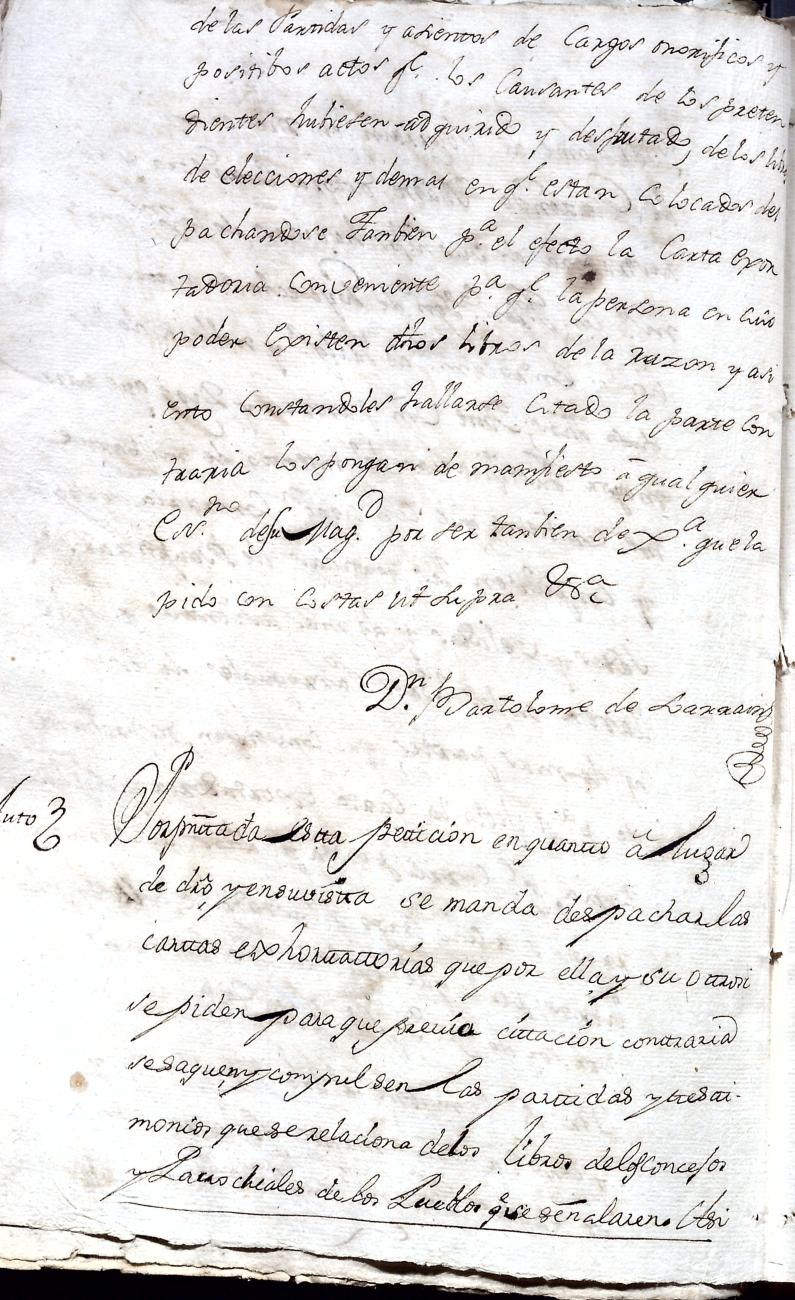 de las Partidas y asientos de Cargos onorificos y
positibos actos q.e los Causantes de los preten
dientes hubiesen adquirido y desfrutado, de los libros
de elecciones y demas en q.e estan Colocados des
pachandose Tanbien p.a el efecto la Carta exor
tadoria conveniente p.a q.e la persona en cuio
poder existen dhos libros de la razon y asi
ento constandoles hallarse Citado la parte con
traria los pongan de manifiesto â qualquier
Es.no de su Mag.d por ser tanbien de Xa. que la
pido con costas ut supra &a
Dn. Bartolome de Larrain
Auto
Por presnttada estta petticion en quantto â lugar
de dro, y en su vistta se manda despachar las
carttas exhorttattorias que por ella y su ottrosi
se piden para que previa cittacion conttraria
se saquen y compulsen las parttidas y testi-
monios que se relaciona de los Libros de los Concejos
y Parrochiales de los Pueblos q.e se señalaren. Asi